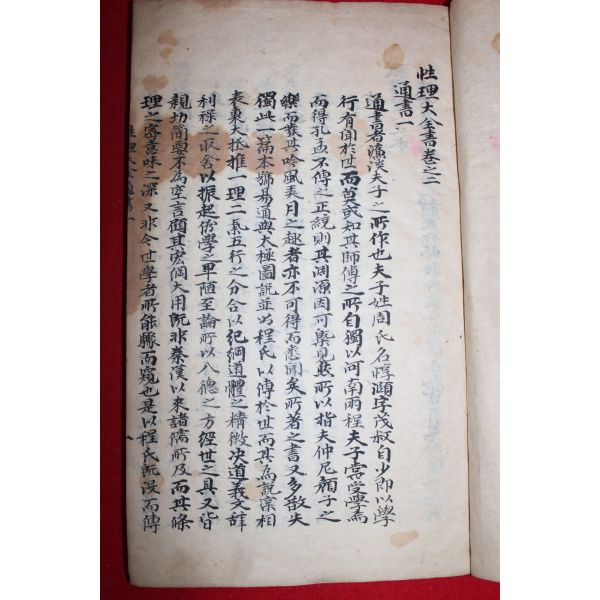 性理大全書卷之二
通書一
通書者濂溪夫子之所作也夫子姓周氏名惇頤字茂叔自少即以學
行有聞於世而莫或知其師傅之所自獨以河南兩程夫子嘗受學焉
而得孔孟不傳之正統則其淵源因可槩見然所以指夫仲尼顏子之
樂而發其吟風弄月之趣者亦不可得而悉聞矣所著之書又多散失
獨此一篇本號易通與太極圖說並出程氏以傳於世而其為說實相
表裏大抵推一理二氣五行之分合以紀綱道體之精微决道義文辭
利祿之取舍以振起俗學之卑陋至論所以入德之方經世之具又皆
親切簡要不為空言顧其宏綱大用既非秦漢以來諸儒所及而其條
理之密意味之深又非今世學者所能驟而窺也是以程氏既沒而傳
性理大全通書一